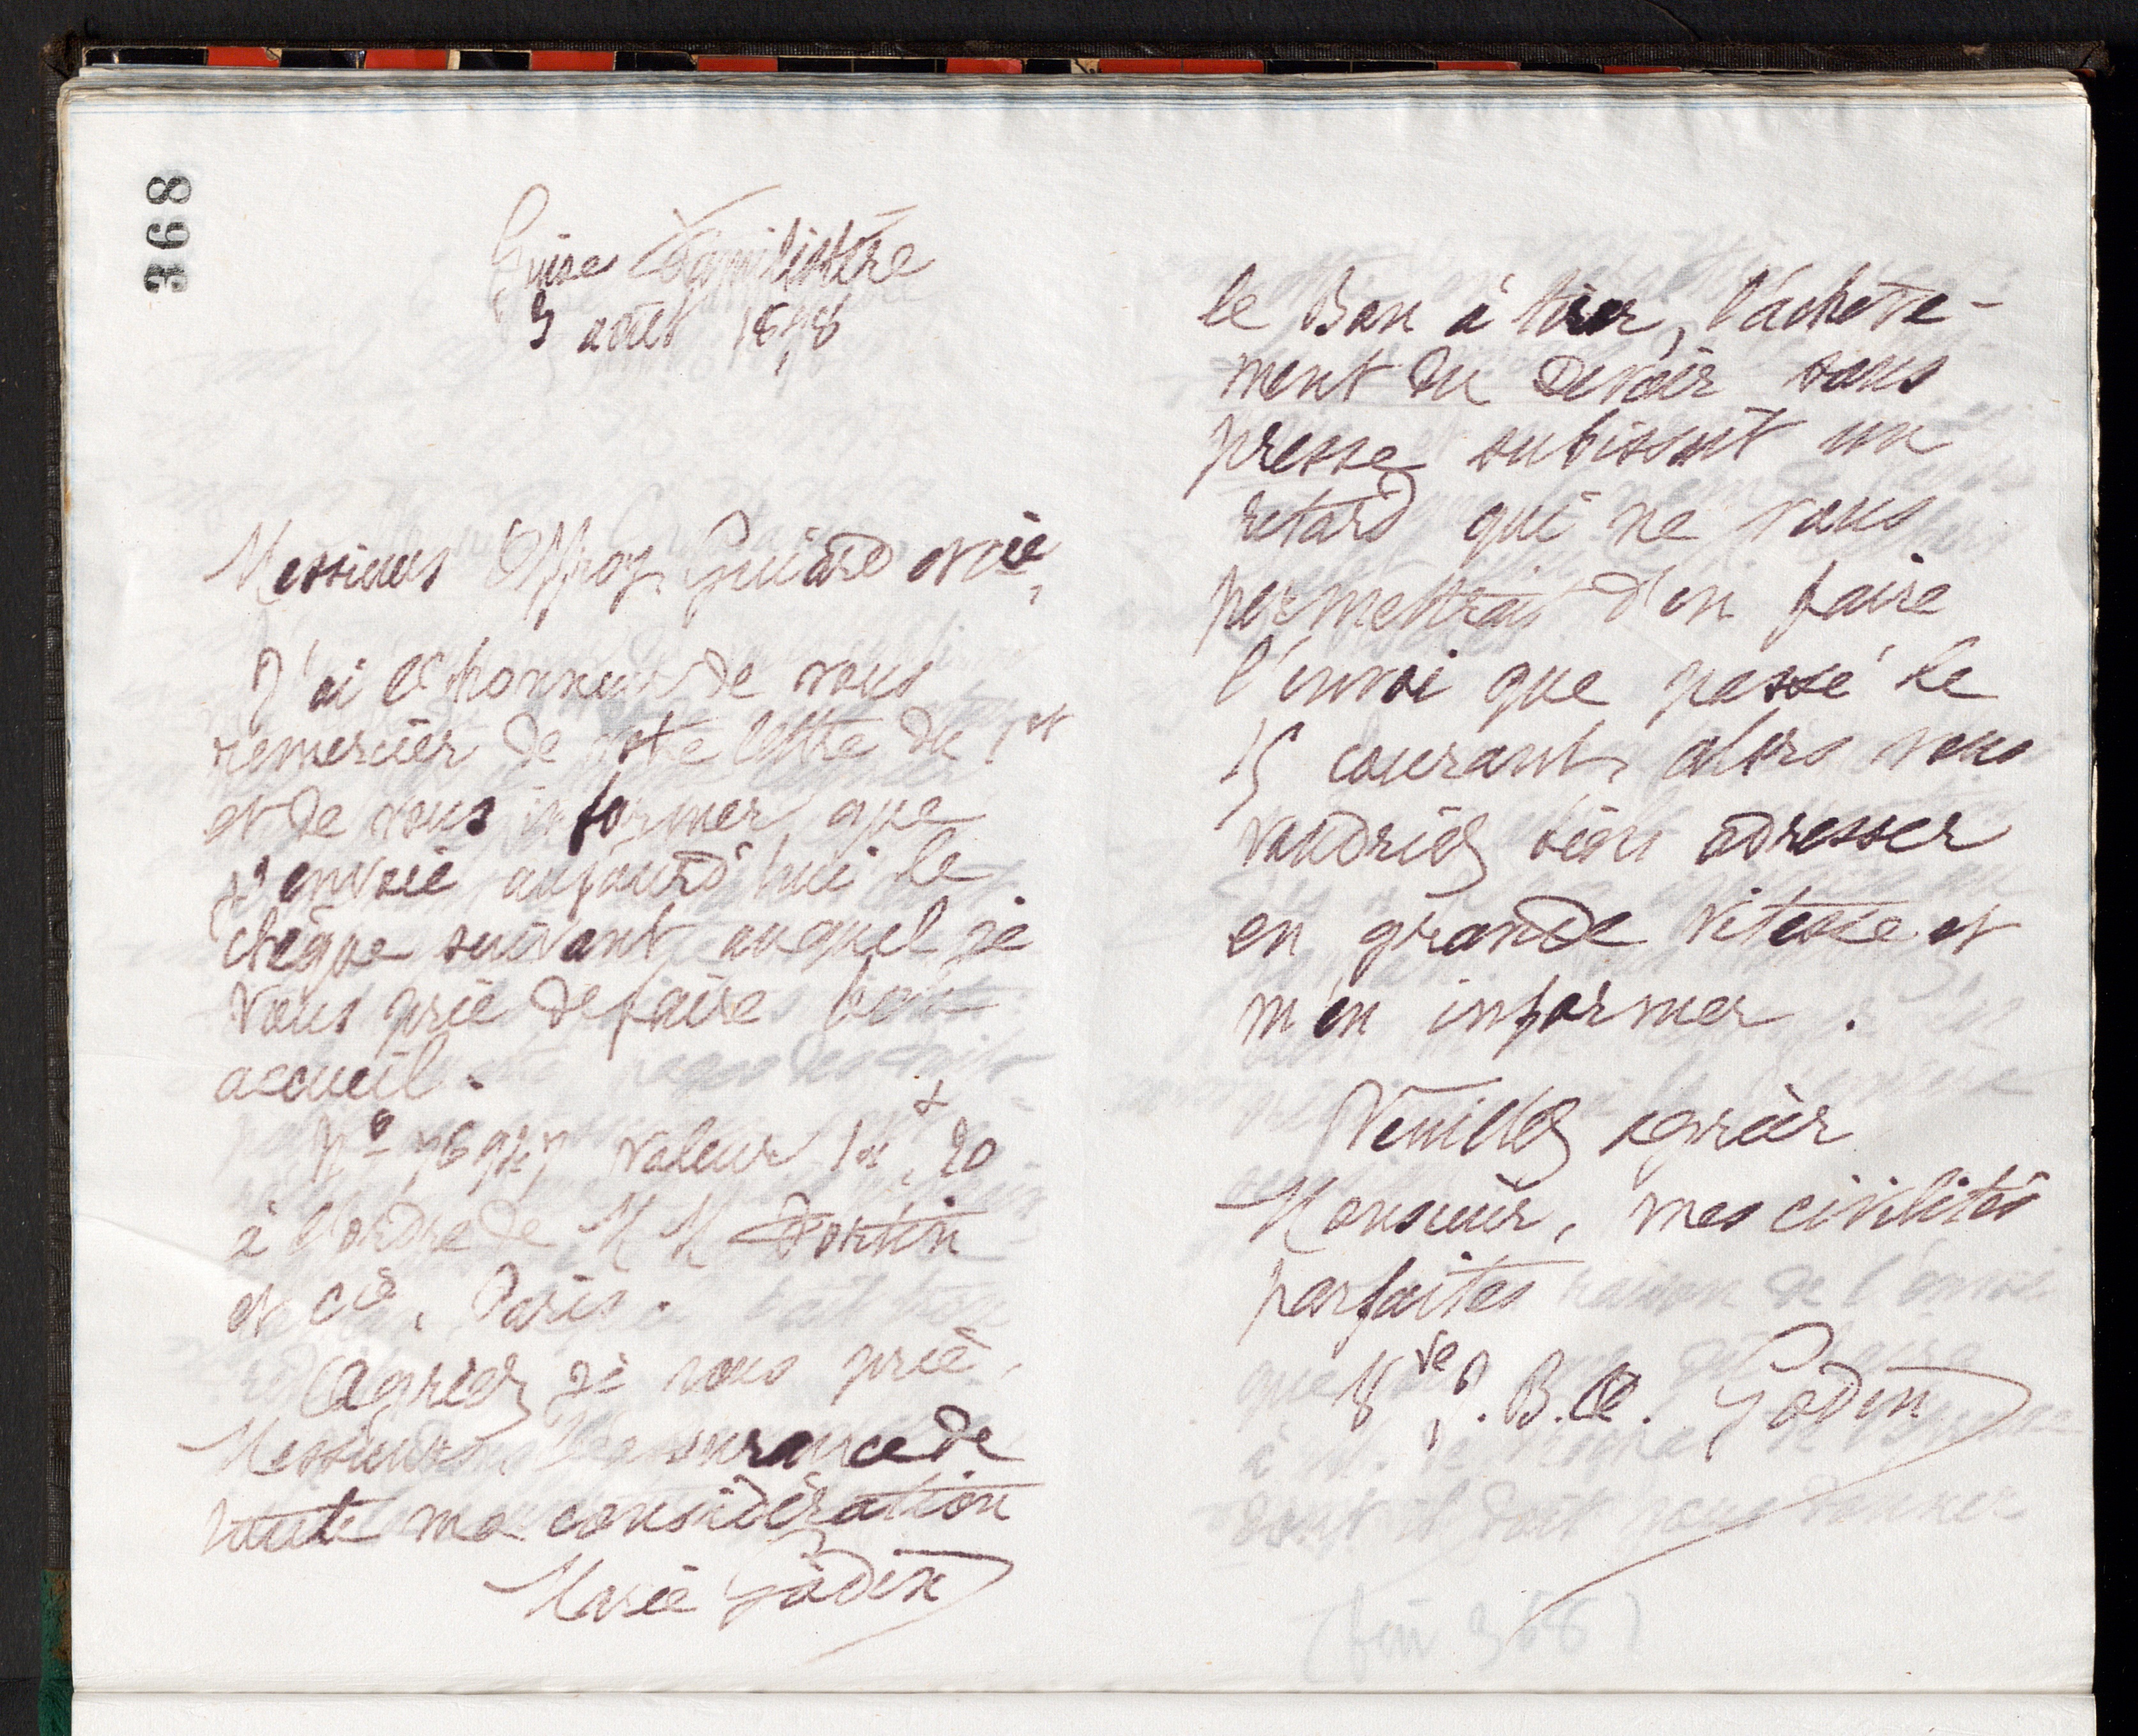 368
Guise Familistère
3 août 1898
Messieurs Offroy Guiard et Cie,
J'ai l'honneur de vous
remercier de votre lettre du 1er
et de vous informer que
j'envoie aujourd'hui le
chèque suivant auquel je
vous prie de faire bon
accueil.
No valeur 20
à l'ordre de M M
et Cie, Paris.
Agréez je vous prie,
Messieurs l'assurance de
toute ma considération
Marie Godin
le Bon à tirer, l'achève-
ment du Devoir sous
presse subissant un
retard qui ne vous
permettrait d'en faire
l'envoi que passé le
15 courant, alors vous
voudriez bien adresser
en grande vitesse et
m'en informer.
Veuillez agréer
Monsieur, mes civilités
parfaites
Vve J. B. A. Godin